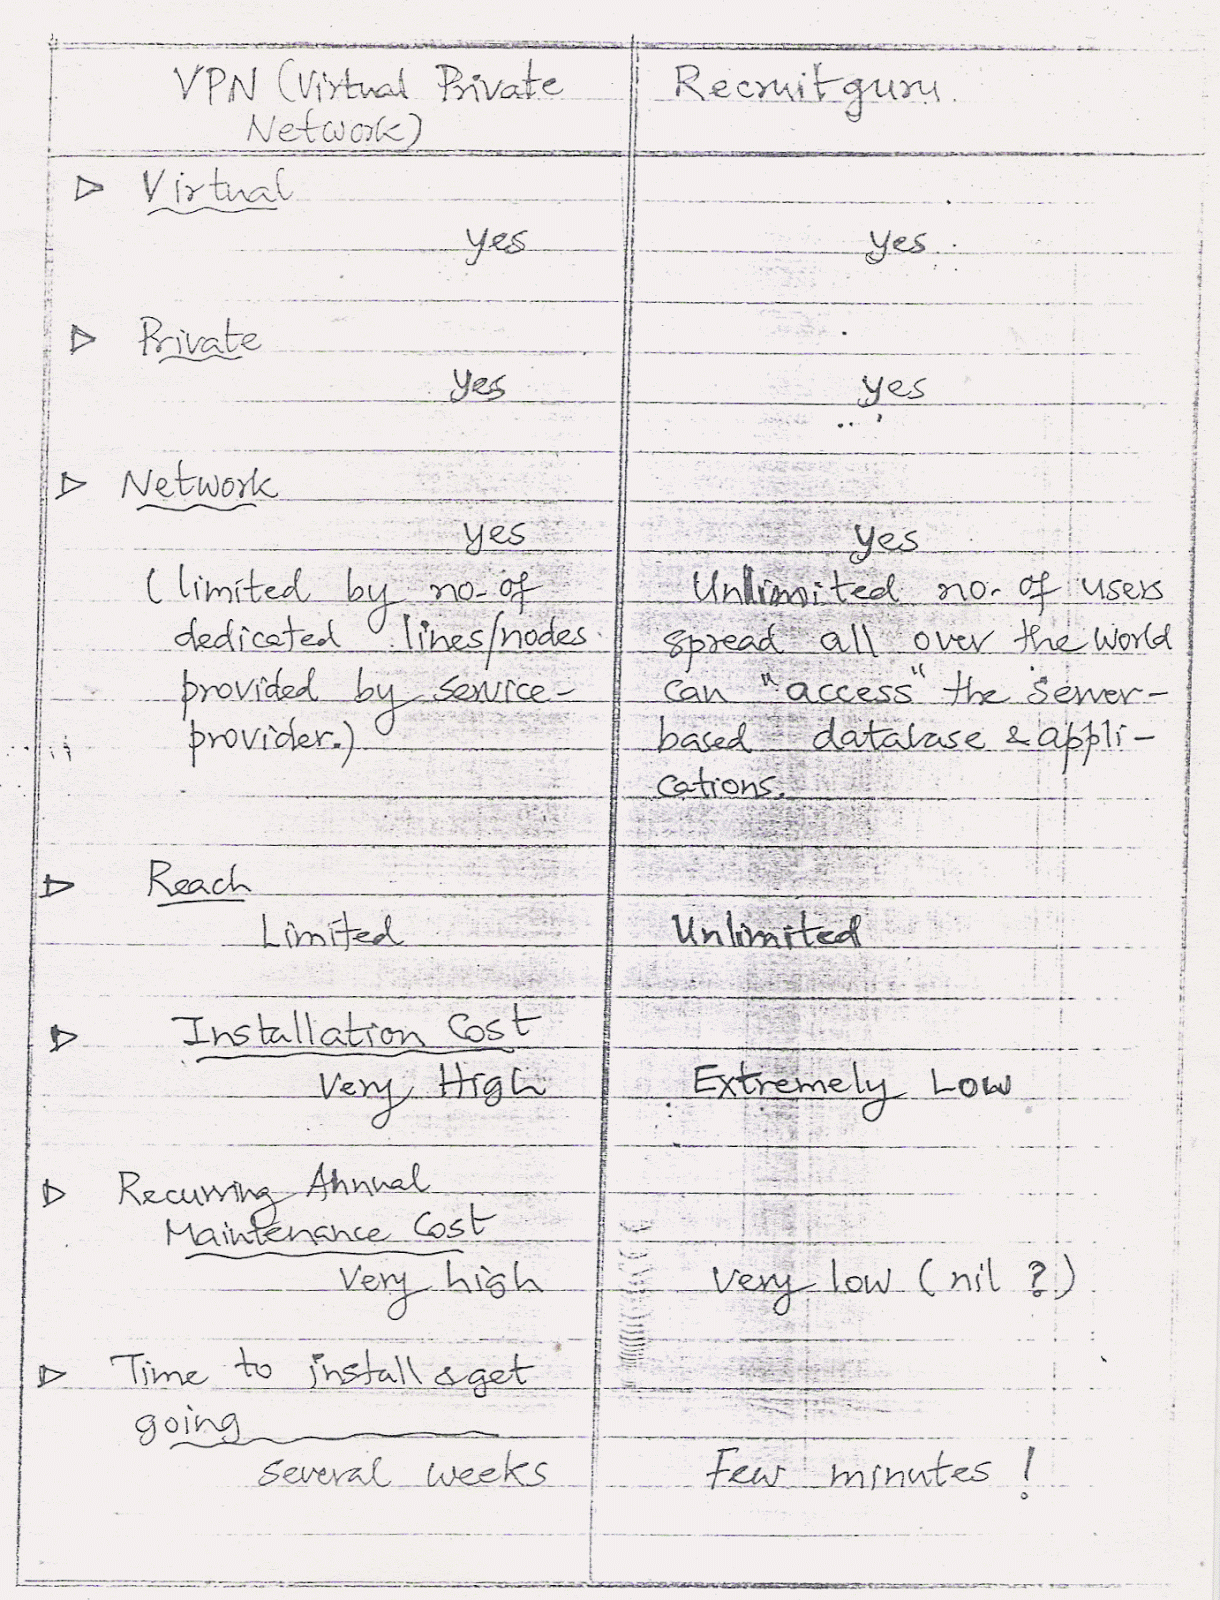 VPN (Virtual Private
Network)
Recruitguru.
▷ Virtual
yes
yes
▷ Private
yes
yes
▷ Network
yes
(limited by no. of
dedicated lines/nodes
provided by service-
provider.)
yes
Unlimited no. of users
spread all over the world
can "access" the server-
based database & appli-
cations.
▷ Reach
Limited
Unlimited
▷ Installation Cost
Very High
Extremely Low
▷ Recurring Annual
Maintenance Cost
Very high
Very low (nil ?)
▷ Time to install & get
going
Several weeks
Few minutes !